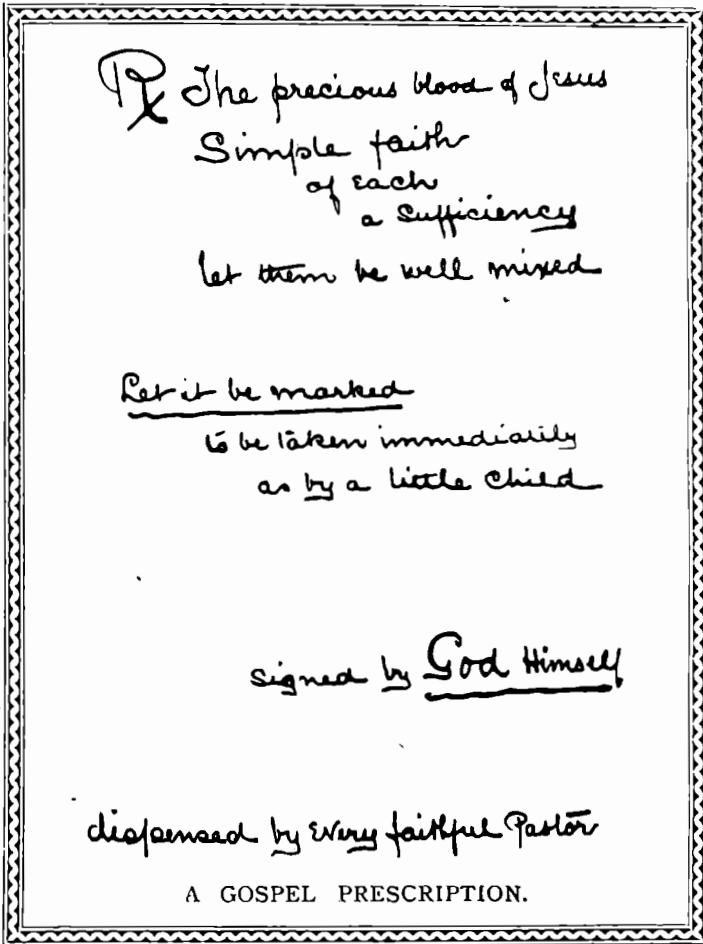 ℞ The precious blood of Jesus
Simple faith
of each
a sufficiency
let them be well mixed
Let it be marked
to be taken immediatily
as by a little child
signed by God Himself
dispensed by every faithful Pastor
A GOSPEL PRESCRIPTION.